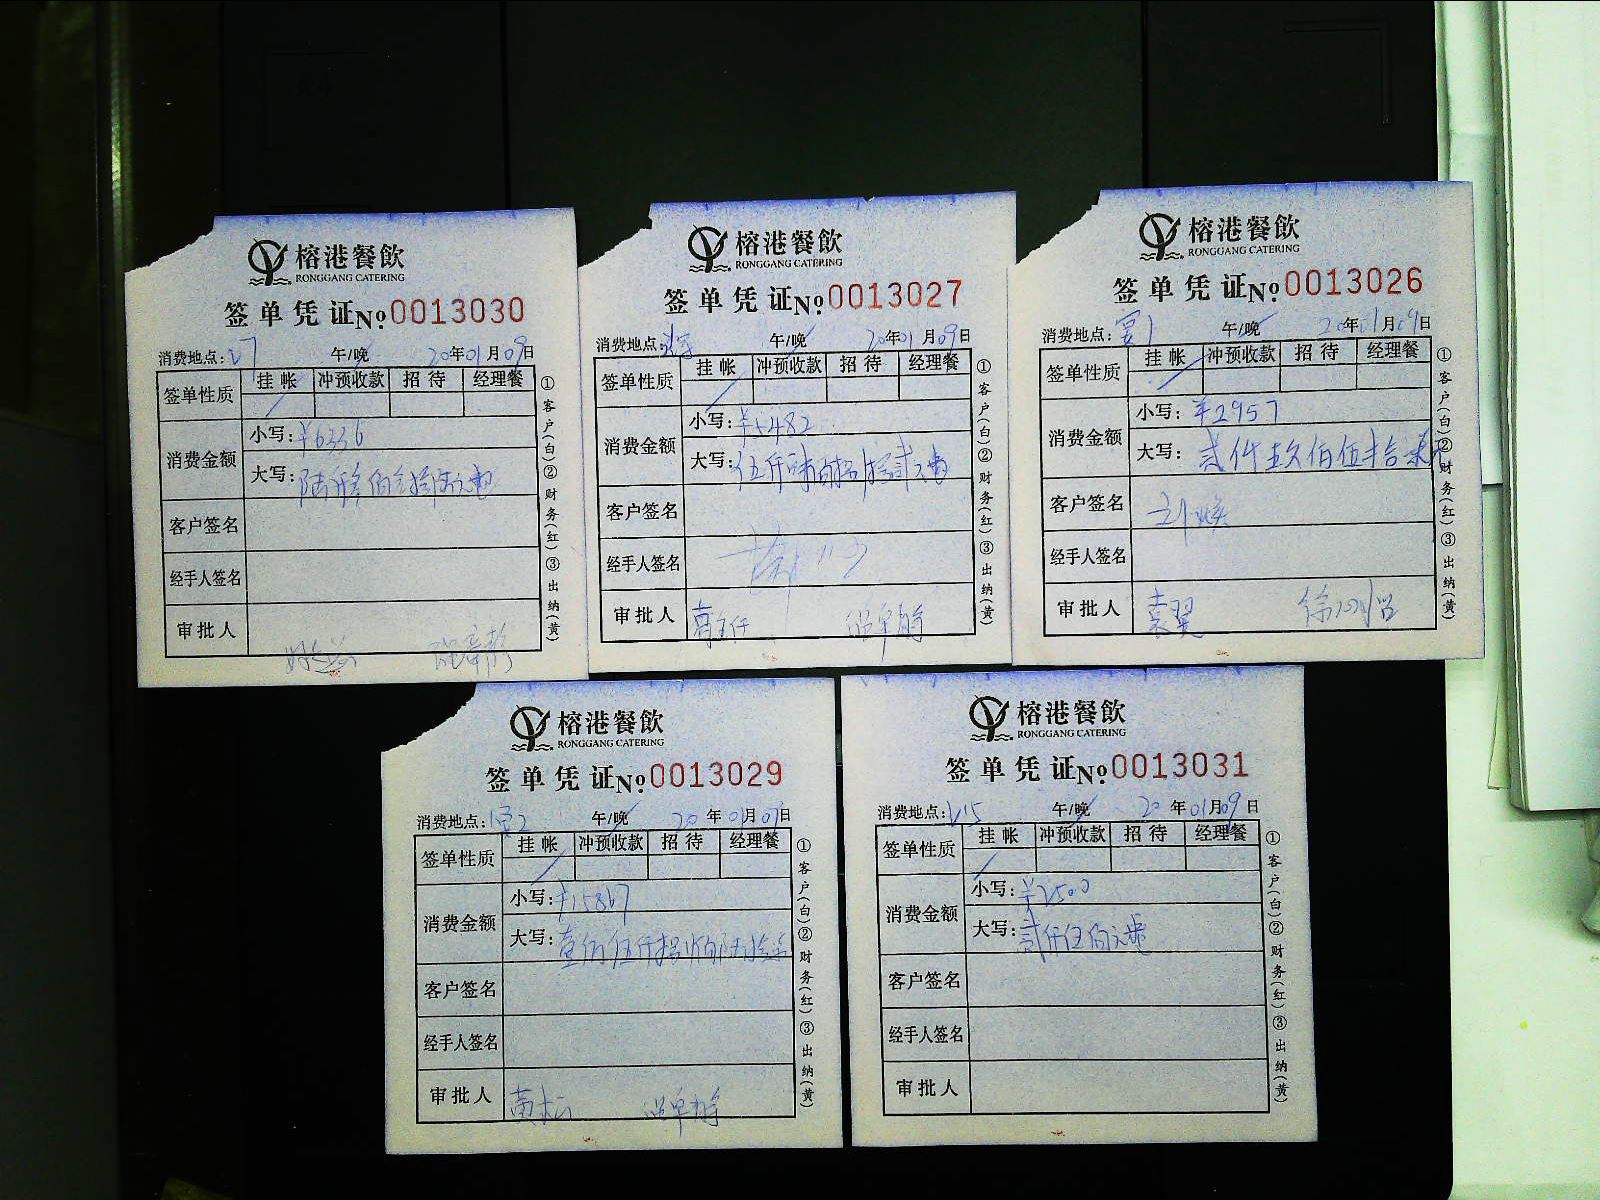 榕港餐飲
RONGGANG CATERING
签单凭证 №0013030
消费地点: 午/晚 20年01月09日
签单性质 挂帐 冲预收款 招待 经理餐
消费金额
小写:¥6336
大写:
客户签名
经手人签名
审批人
①客户(白)②财务(红)③出纳(黄)
榕港餐飲
RONGGANG CATERING
签单凭证 №0013027
消费地点: 午/晚 20年01月09日
签单性质 挂帐 冲预收款 招待 经理餐
消费金额
小写:¥5482
大写:
客户签名
经手人签名
审批人
①客户(白)②财务(红)③出纳(黄)
榕港餐飲
RONGGANG CATERING
签单凭证 №0013026
消费地点: 午/晚 20年01月09日
签单性质 挂帐 冲预收款 招待 经理餐
消费金额
小写:¥2957
大写:贰仟玖佰伍拾柒
客户签名
经手人签名
审批人 袁翼
①客户(白)②财务(红)③出纳(黄)
榕港餐飲
RONGGANG CATERING
签单凭证 №0013029
消费地点: 午/晚 20年01月09日
签单性质 挂帐 冲预收款 招待 经理餐
消费金额
小写:¥15867
大写:
客户签名
经手人签名
审批人
①客户(白)②财务(红)③出纳(黄)
榕港餐飲
RONGGANG CATERING
签单凭证 №0013031
消费地点:V15 午/晚 20年01月09日
签单性质 挂帐 冲预收款 招待 经理餐
消费金额
小写:¥2500
大写:贰仟伍佰元整
客户签名
经手人签名
审批人
①客户(白)②财务(红)③出纳(黄)